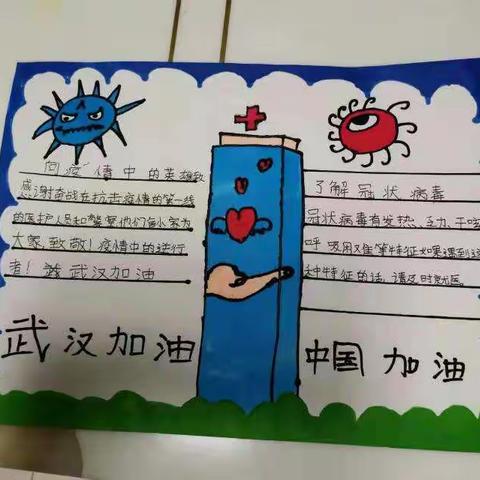 向疫情中的英雄致
感谢奋战在抗击疫情的第一线
的医护人员和警察他们舍小家为
大家,致敬!疫情中的逆行
者!武汉加油
武汉加油
了解冠状病毒
冠状病毒有发热、乏力、干咳
呼吸困难等特征如果遇到这
种特征的话,请及时就医。
中国加油